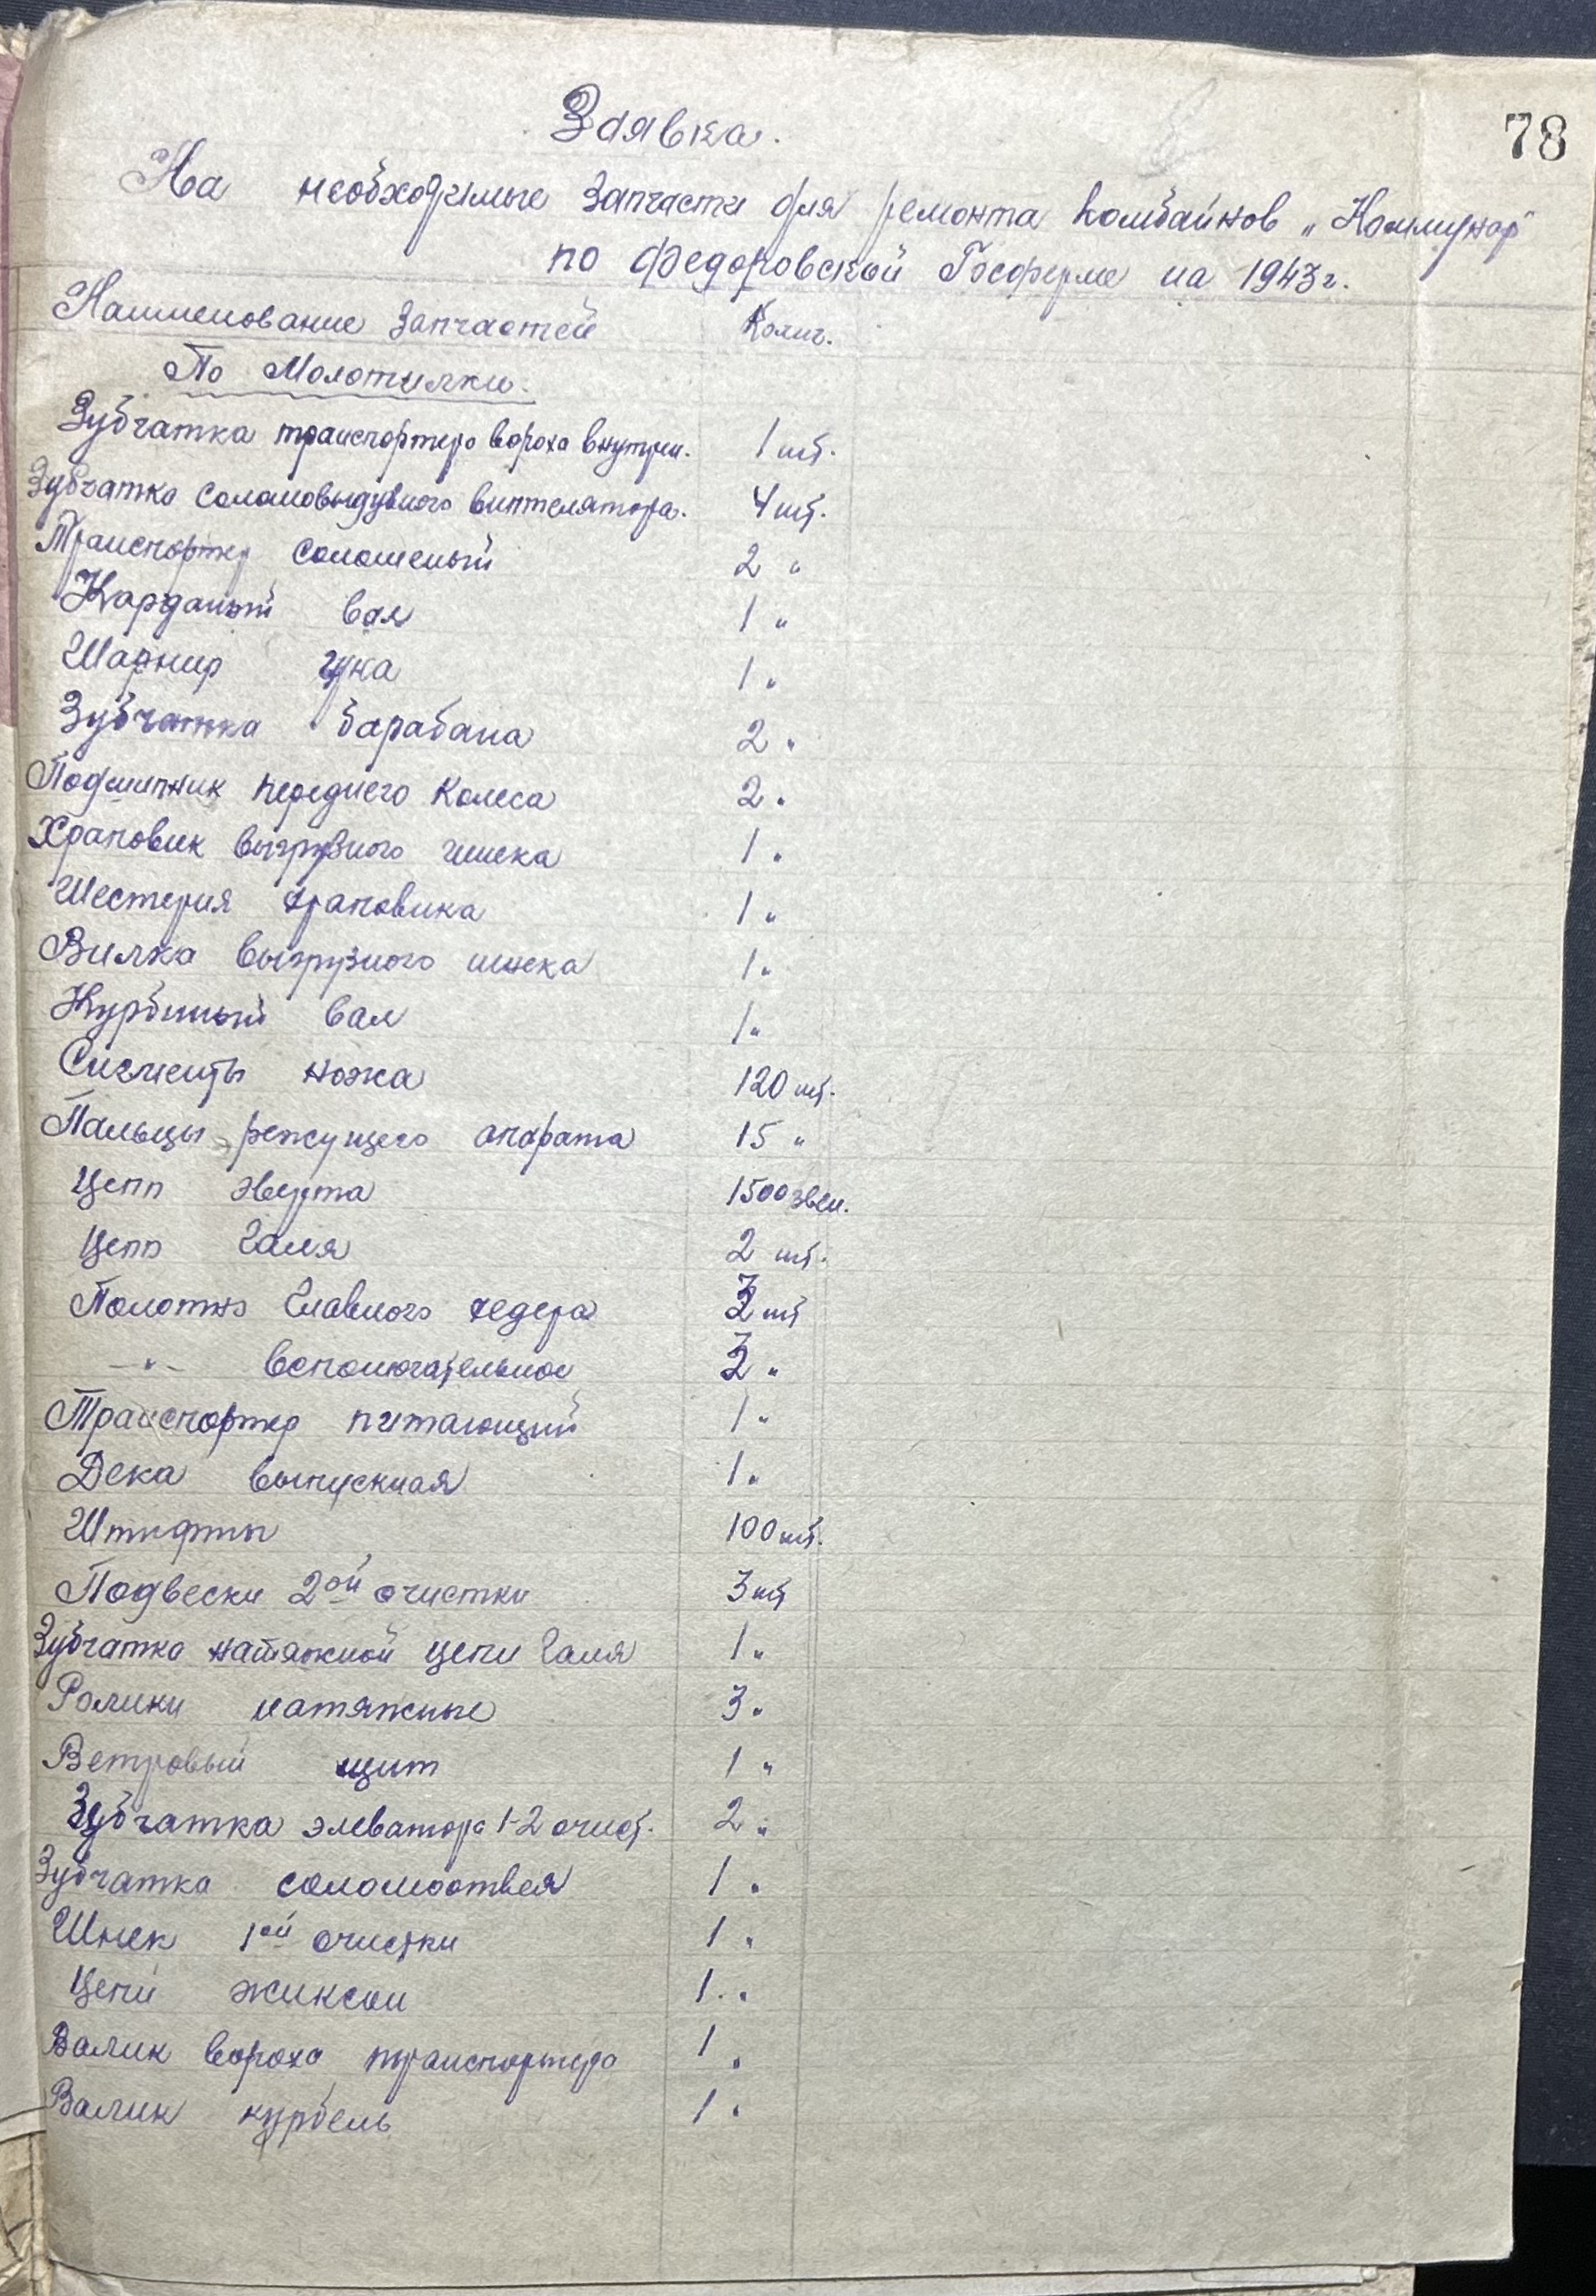 78
Заявка.
На необходимые запчасти для ремонта комбайнов „Коммунар"
по Федоровской Госферме на 1943 г.
Наименование запчастей Колич.
По Молотилки.
Зубчатка транспортера вороха внутрен. 1 шт.
Зубчатка соломовыдувного винтелятора. 4 шт.
Транспортер соломеный 2 "
Карданый вал 1 "
Шарнир гука 1 "
Зубчатка барабана 2 "
Подшипник переднего колеса 2 "
Храповик выгрузного шнека 1 "
Шестерня храповика 1 "
Вилка выгрузного шнека 1 "
Курбиный вал 1 "
Сигменты ножа 120 шт.
Пальцы режущего апарата 15 "
Цепп эверта 1500 звен.
Цепп Галя 2 шт.
Полотно главного хедера 3 шт
—"— вспомогательное 3 "
Транспортер питающий 1 "
Дека выпускная 1 "
Штифты 100 шт.
Подвески 2ой очистки 3 шт
Зубчатка натяжной цепи Галя 1 "
Ролики натяжные 3 "
Ветровый щит 1 "
Зубчатка элеватора 1-2 очист. 2 "
Зубчатка соломоотвея 1 "
Шнек 1ой очистки 1 "
Цепи жиксон 1 "
Валик вороха транспортера 1 "
Валик курбель 1 "